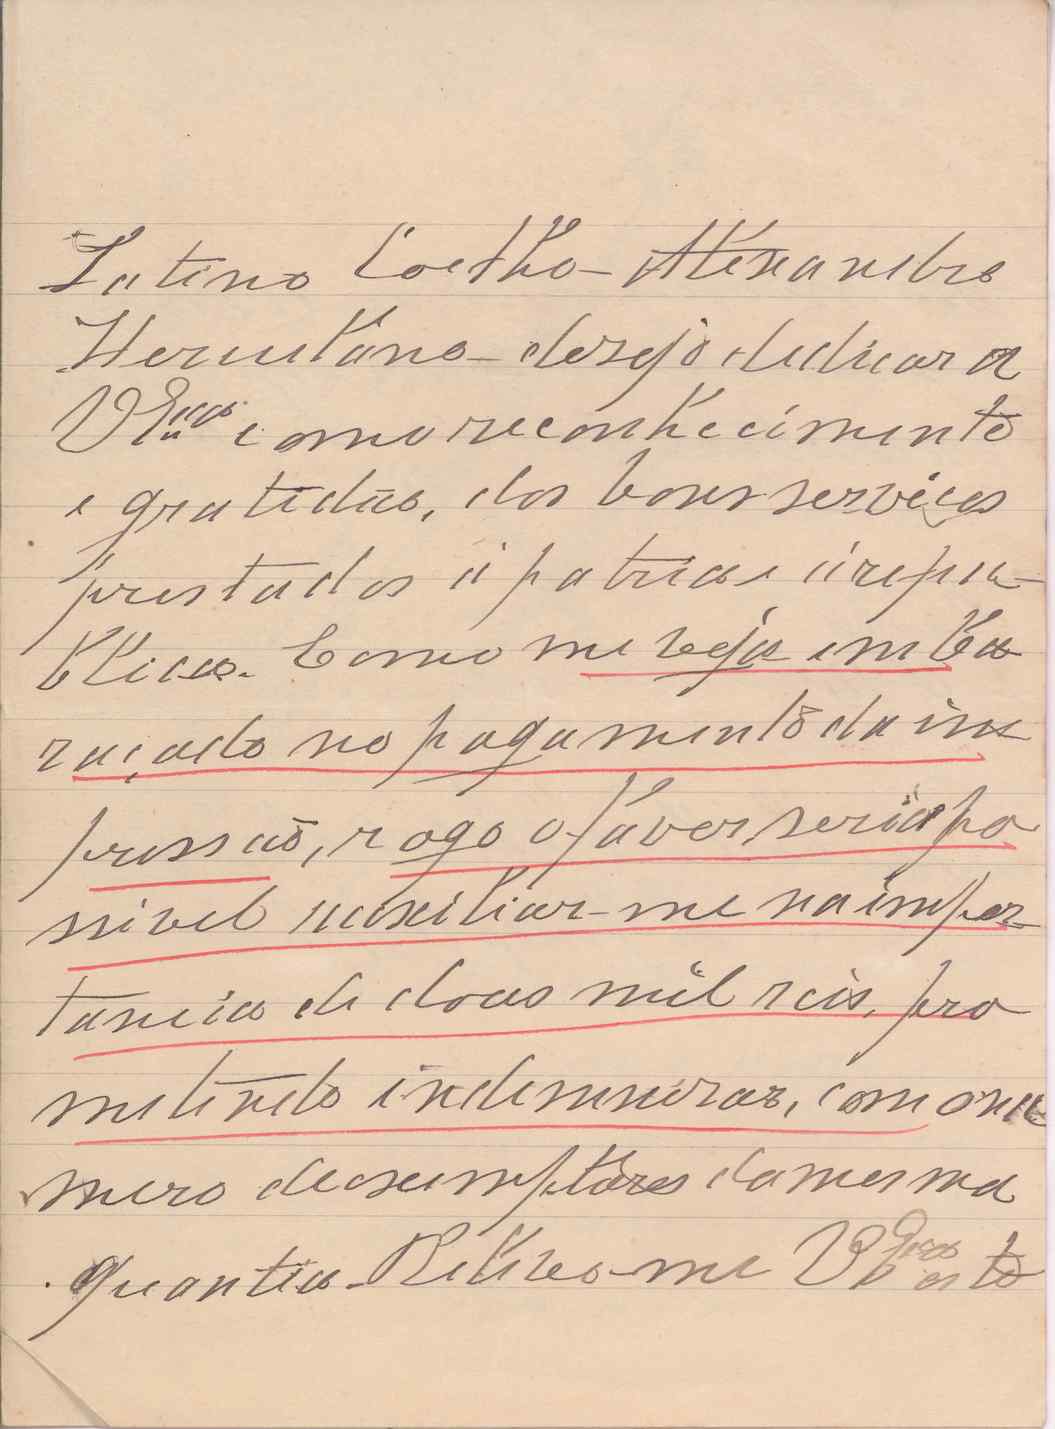 Latino Coelho - Alexandre
Herculano - desejo dedicar a
V Excia como reconhecimento
e gratidão, dos bons serviços
prestados á patria e á repu-
blica. Como me veja emba
raçado no pagamento da im
pressão, rogo o favor seria po
ssivel auxiliar-me na impor-
tancia de doas mil reis, pro
metindo indemnizar, com o nu
mero de exemplares da mesma
quantia. Refiro-me V Excia